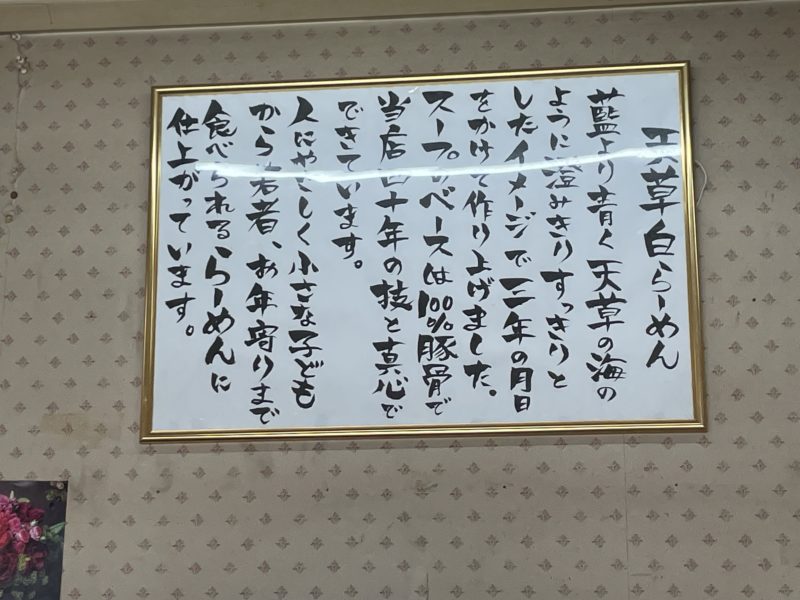 天草白らーめん
藍より青く天草の海の
ように澄みきりすっきりと
したイメージで三年の月日
をかけて作り上げました。
スープのベースは100%豚骨で
当店四十年の技と真心で
できています。
人にやさしく小さな子ども
から若者、お年寄りまで
食べられるらーめんに
仕上がっています。